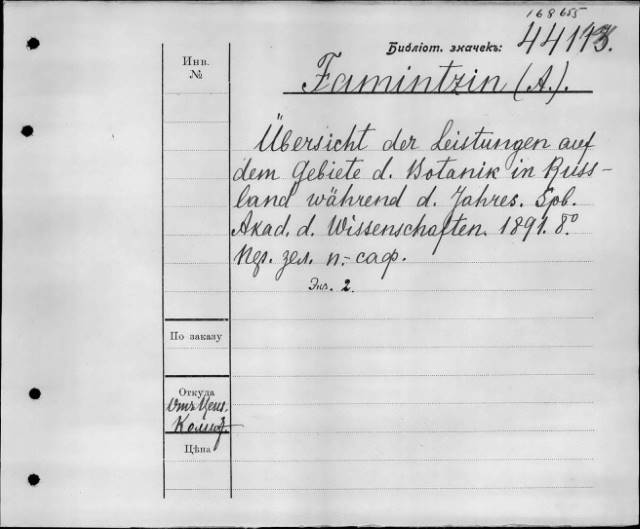 168655
Библіот. значекъ: 44143.
Инв.
№
Famintzin (A.).
Übersicht der Leistungen auf
dem Gebiete d. Botanik in Russ-
land während d. Jahres. Spb.
Akad. d. Wissenschaften. 1891. 8º
пер. зел. п.-саф.
Экз. 2.
По заказу
Откуда
Отъ Ценз.
Цѣна